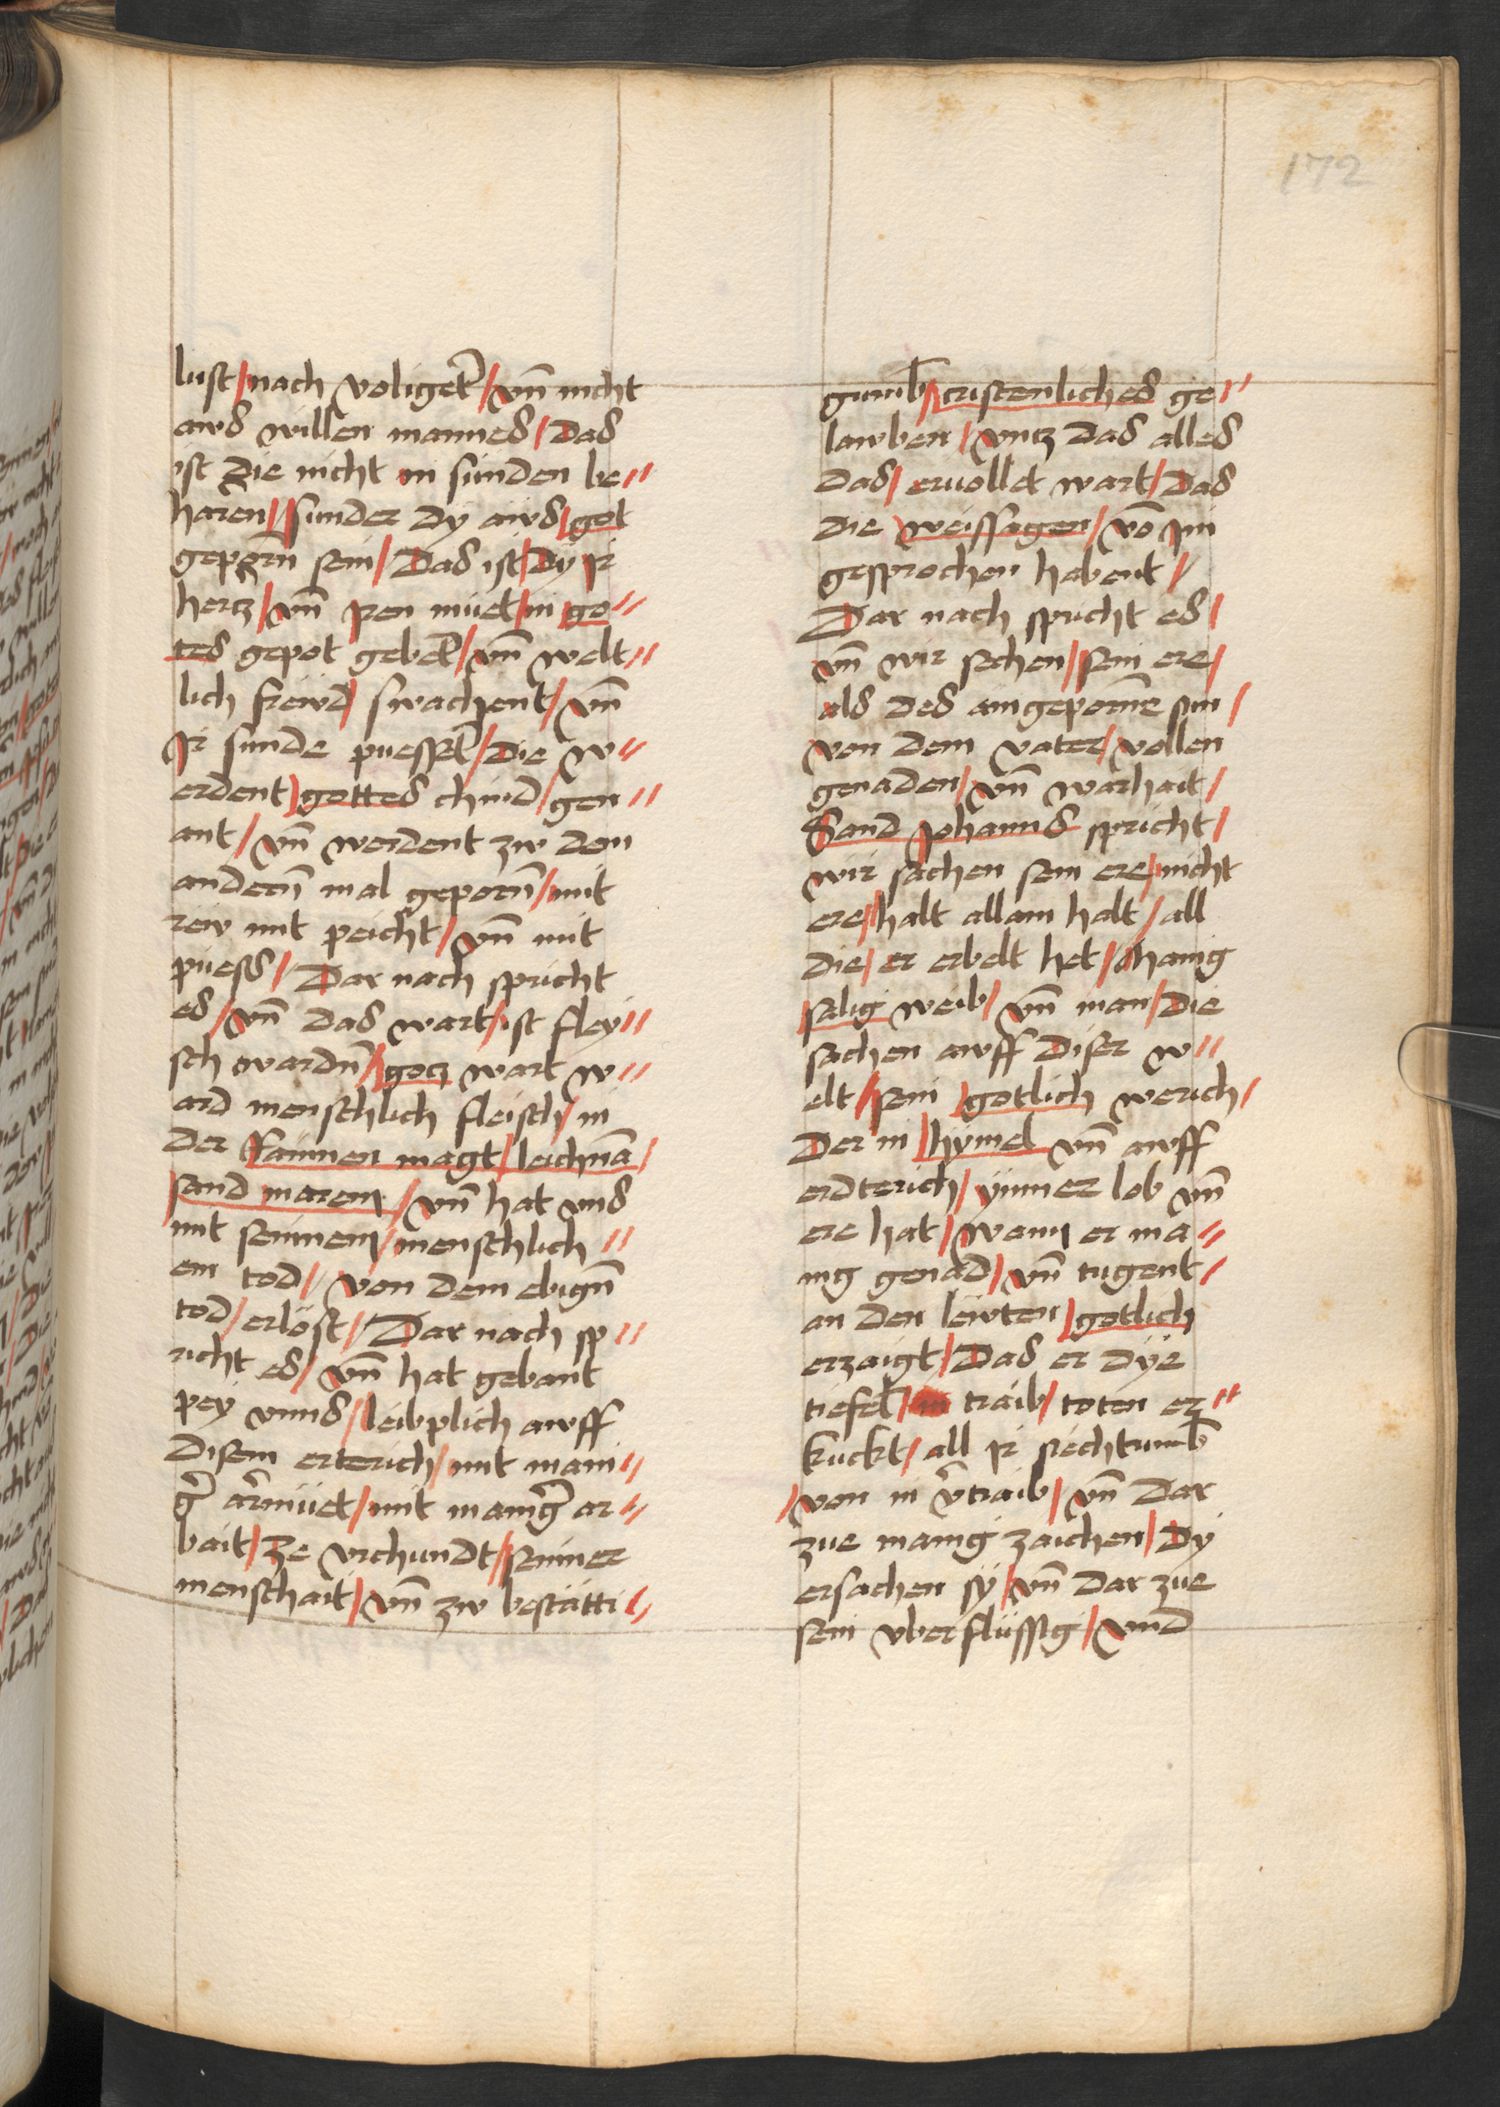 172
lust/nach voligetˀ/vnͤ nicht
aws willen mannes/Das
ist Die nicht in sünden be//
haren//sunder Dy aws/got
geporn̄ sein/Das ist/Dy Ir
hertz/vnͤ Iren müet/in go//
tes gepot gebent/vnͤ welt//
lich freẅd/swachent/vnͤ
Ir sunde puessent/Die w//
erdent/gottes chind/gen//
ant/vnͤ werdent zw dem
anderm̄ mal geporn̄/mit
rew mit peicht/vnͤ mit
puess/Dar nach spricht
es/vnͤ Das wart/ist fley//
sch wardn̄/gotz wart w//
ard menschlich fleisch/in
Der rainnen magt/leichnā/
sand marein/vnͤ hat vns
mit seinnem/menschlich//
em tod//von dem ebign̄
tod/erlöst//Dar nach sp//
richt es/vnͤ hat gebant
pey vnns/leibplich awff
Disem erterich/mit mani//
gˀ armüet/mit manigˀ ar//
bait/ze vrchundt/seinner
menschait/vnͤ zw bestätti//
gumb/cristenliches ge//
lawben/vntz Das alles
Das/ eruollet wart/Das
die weissagen/vō Im
gesprochen habent/
Dar nach spricht es/
vnͤ wir sechen/sein ere/
als Des aingeporne sun/
von dem vater/vollen
genaden/vnͤ warhait/
Sand Johanns spricht/
wir sachen sein ere/nicht
ere/halt allain halt/all
Die/er erbelt het/manig
salig weib/vnͤ man/Die
sachen awff Diser w//
elt/sein gotlich werich/
Der in hymel vnͤ awff
erdterich/ÿmmer lob vnͤ
ere hat/wann er ma//
nig genad/vnͤ tugent/
an den lewten/gotlich
erzaigt/Das er Dÿe
tiefel/ traib/toten er//
kuckt/all Ir siechtumb
/von in vˀtraib/vnͤ Dar
zue manig zaichen/Dy
ersachen sy/vnͤ Dar zue
sein vberflüssig/vnd